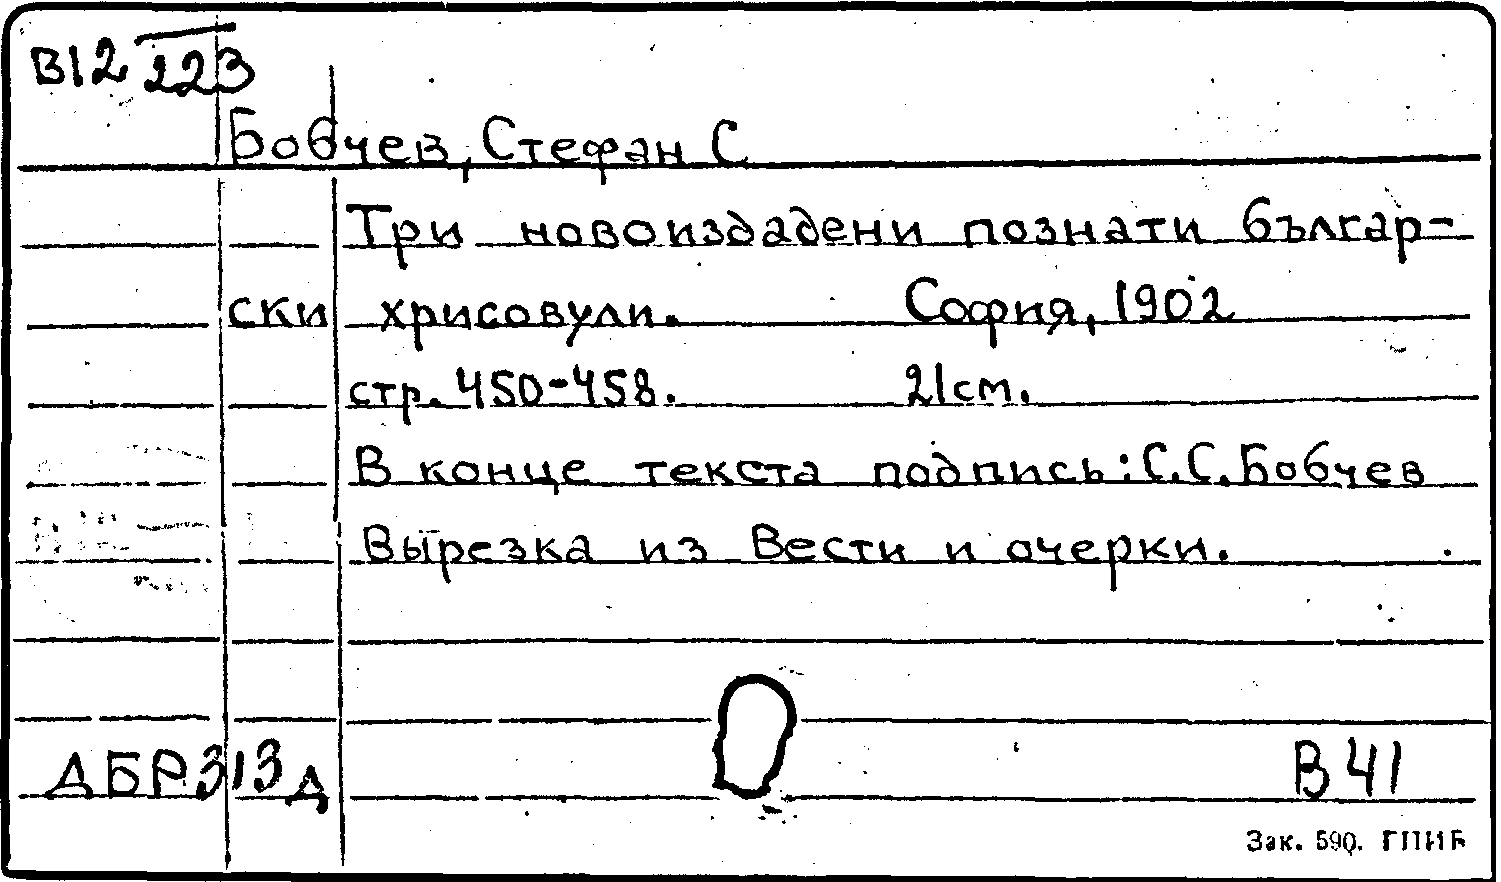 В12 223
Бобчев, Стефан С
Три новоиздадени познати българ-
ски хрисовули. София, 1902
стр. 450-458. 21см.
В конце текста подпись: С.С. Бобчев
Вырезка из Вести и очерки.
ДБР313д
В 41
Зак. 590. ГПИБ